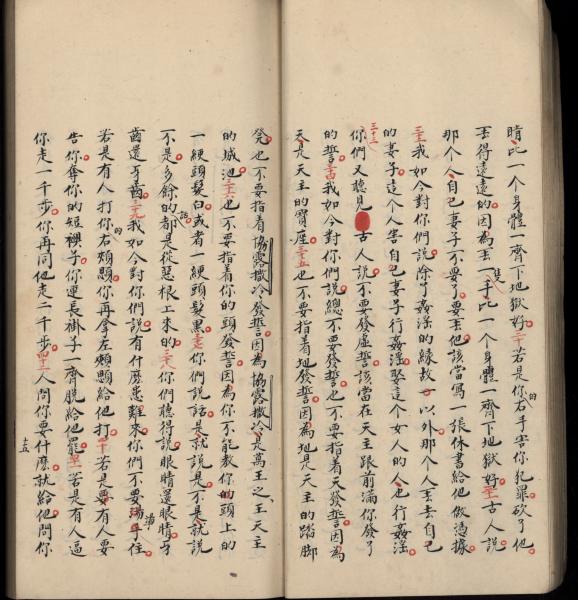 睛比一个身體一齊下地獄好三十若是你的右手害你犯罪砍了他
丟得遠遠的因為丟一隻手比一个身體一齊下地獄好三一古人說
那个人自己妻子不要了要丟他該當寫一張休書給他做憑據
三二我如今對你們說除了姦淫的緣故以外那个人丟去自己
的妻子這个人害自己妻子行姦淫娶這个女人的人也行姦淫
三十三你們又聽見古人說不要發虛誓該當在天主跟前滿你發了
的誓三四我如今對你們說總不要發誓也不要指着天發誓因為
天是天主的寶座三五也不要指着地發誓因為地是天主的踏脚
凳也不要指着協露撒冷發誓因為協露撒冷是萬王之王天主
的城池三六也不要指着你的頭發誓因為你不能教你的頭上的
一綆頭髮白或者一綆頭髮黑三七你們說話是就說是不是就說
不是多餘的話都是從惡根上來的三八你們聽得說眼睛還眼睛牙
齒還牙齒三九我如今對你們說有什麽患難來你們不要手住
若是有人打你的右頰顋你再拿左頰顋給他打四十若是要有人要
告你奪你的短襖子你連長褂子一齊脫給他罷四一若是有人逼
你走一千步你再同他走二千步四二人問你要什麽就給他問你
十五